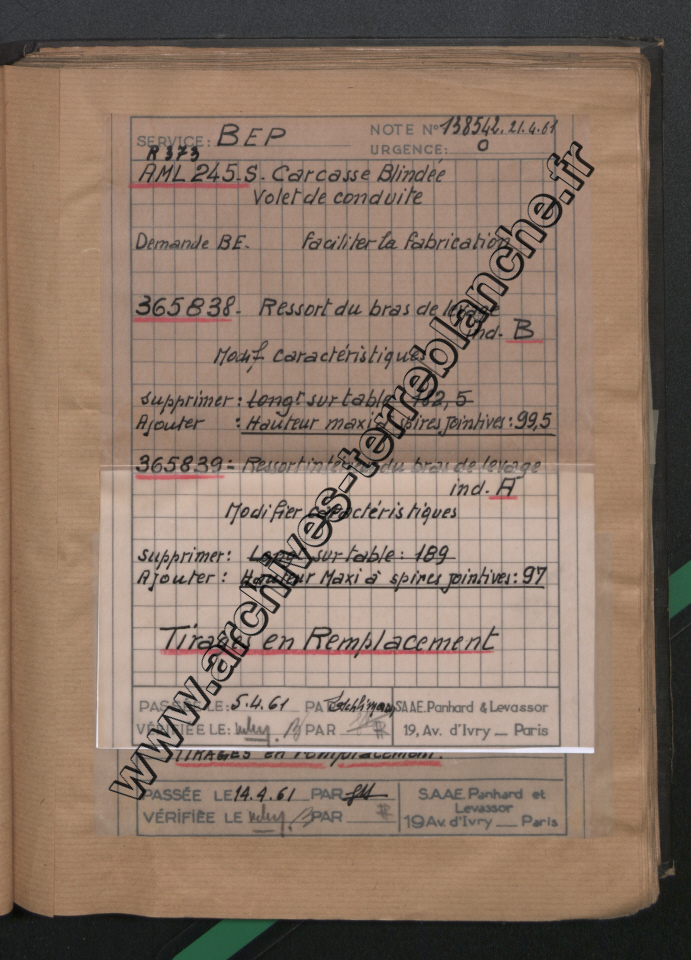 SERVICE: BEP
NOTE N° 138542. 21.4.61
URGENCE: 0
R 373
AML 245.S. Carcasse Blindée
Volet de conduite
Demande BE. Faciliter la fabrication
365838. Ressort du bras de levage
ind. B
Modif caractéristiques
Supprimer: Longt sur table 192,5
Ajouter : Hauteur maxi à spires jointives: 99,5
365839= Ressort intérieur du bras de levage
ind. A
Modifier caractéristiques
Supprimer: Longt sur table: 189
Ajouter: Hauteur Maxi à spires jointives: 97
Tirages en Remplacement
PASSÉE LE: 5.4.61 PAR S.A.A.E. Panhard & Levassor
VÉRIFIÉE LE: PAR 19, Av. d'Ivry __ Paris
TIRAGES en remplacement.
PASSÉE LE 14.4.61 PAR S.A.A.E. Panhard et
Levassor
VÉRIFIÉE LE PAR 19 Av. d'Ivry __ Paris
www.archives-terreblanche.fr